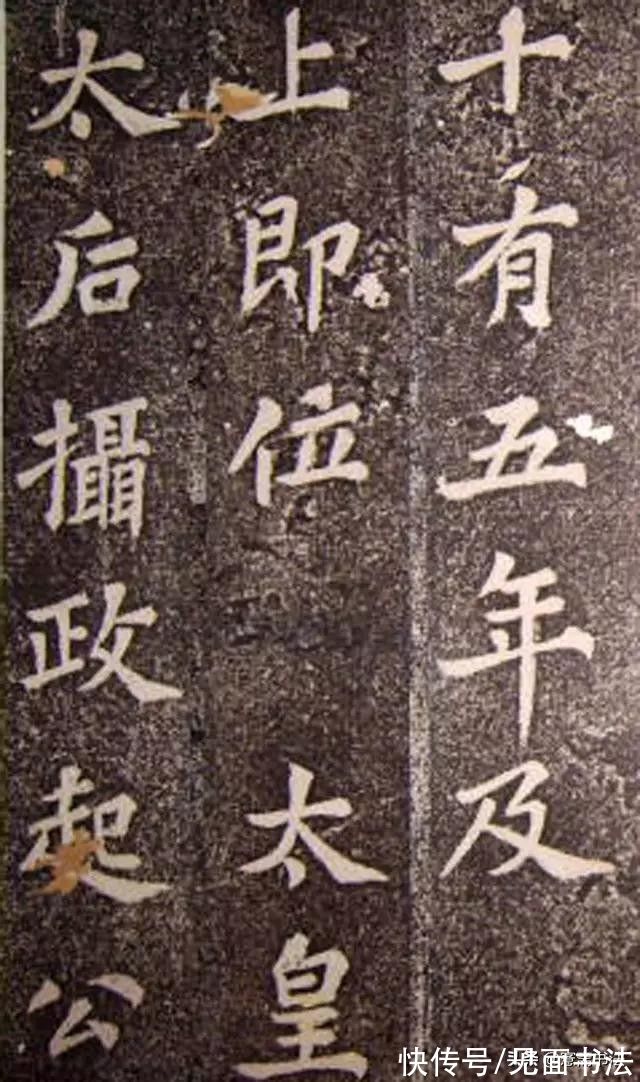 十有五年及
上即位 太皇
太后攝政起公
快传号/见面书法